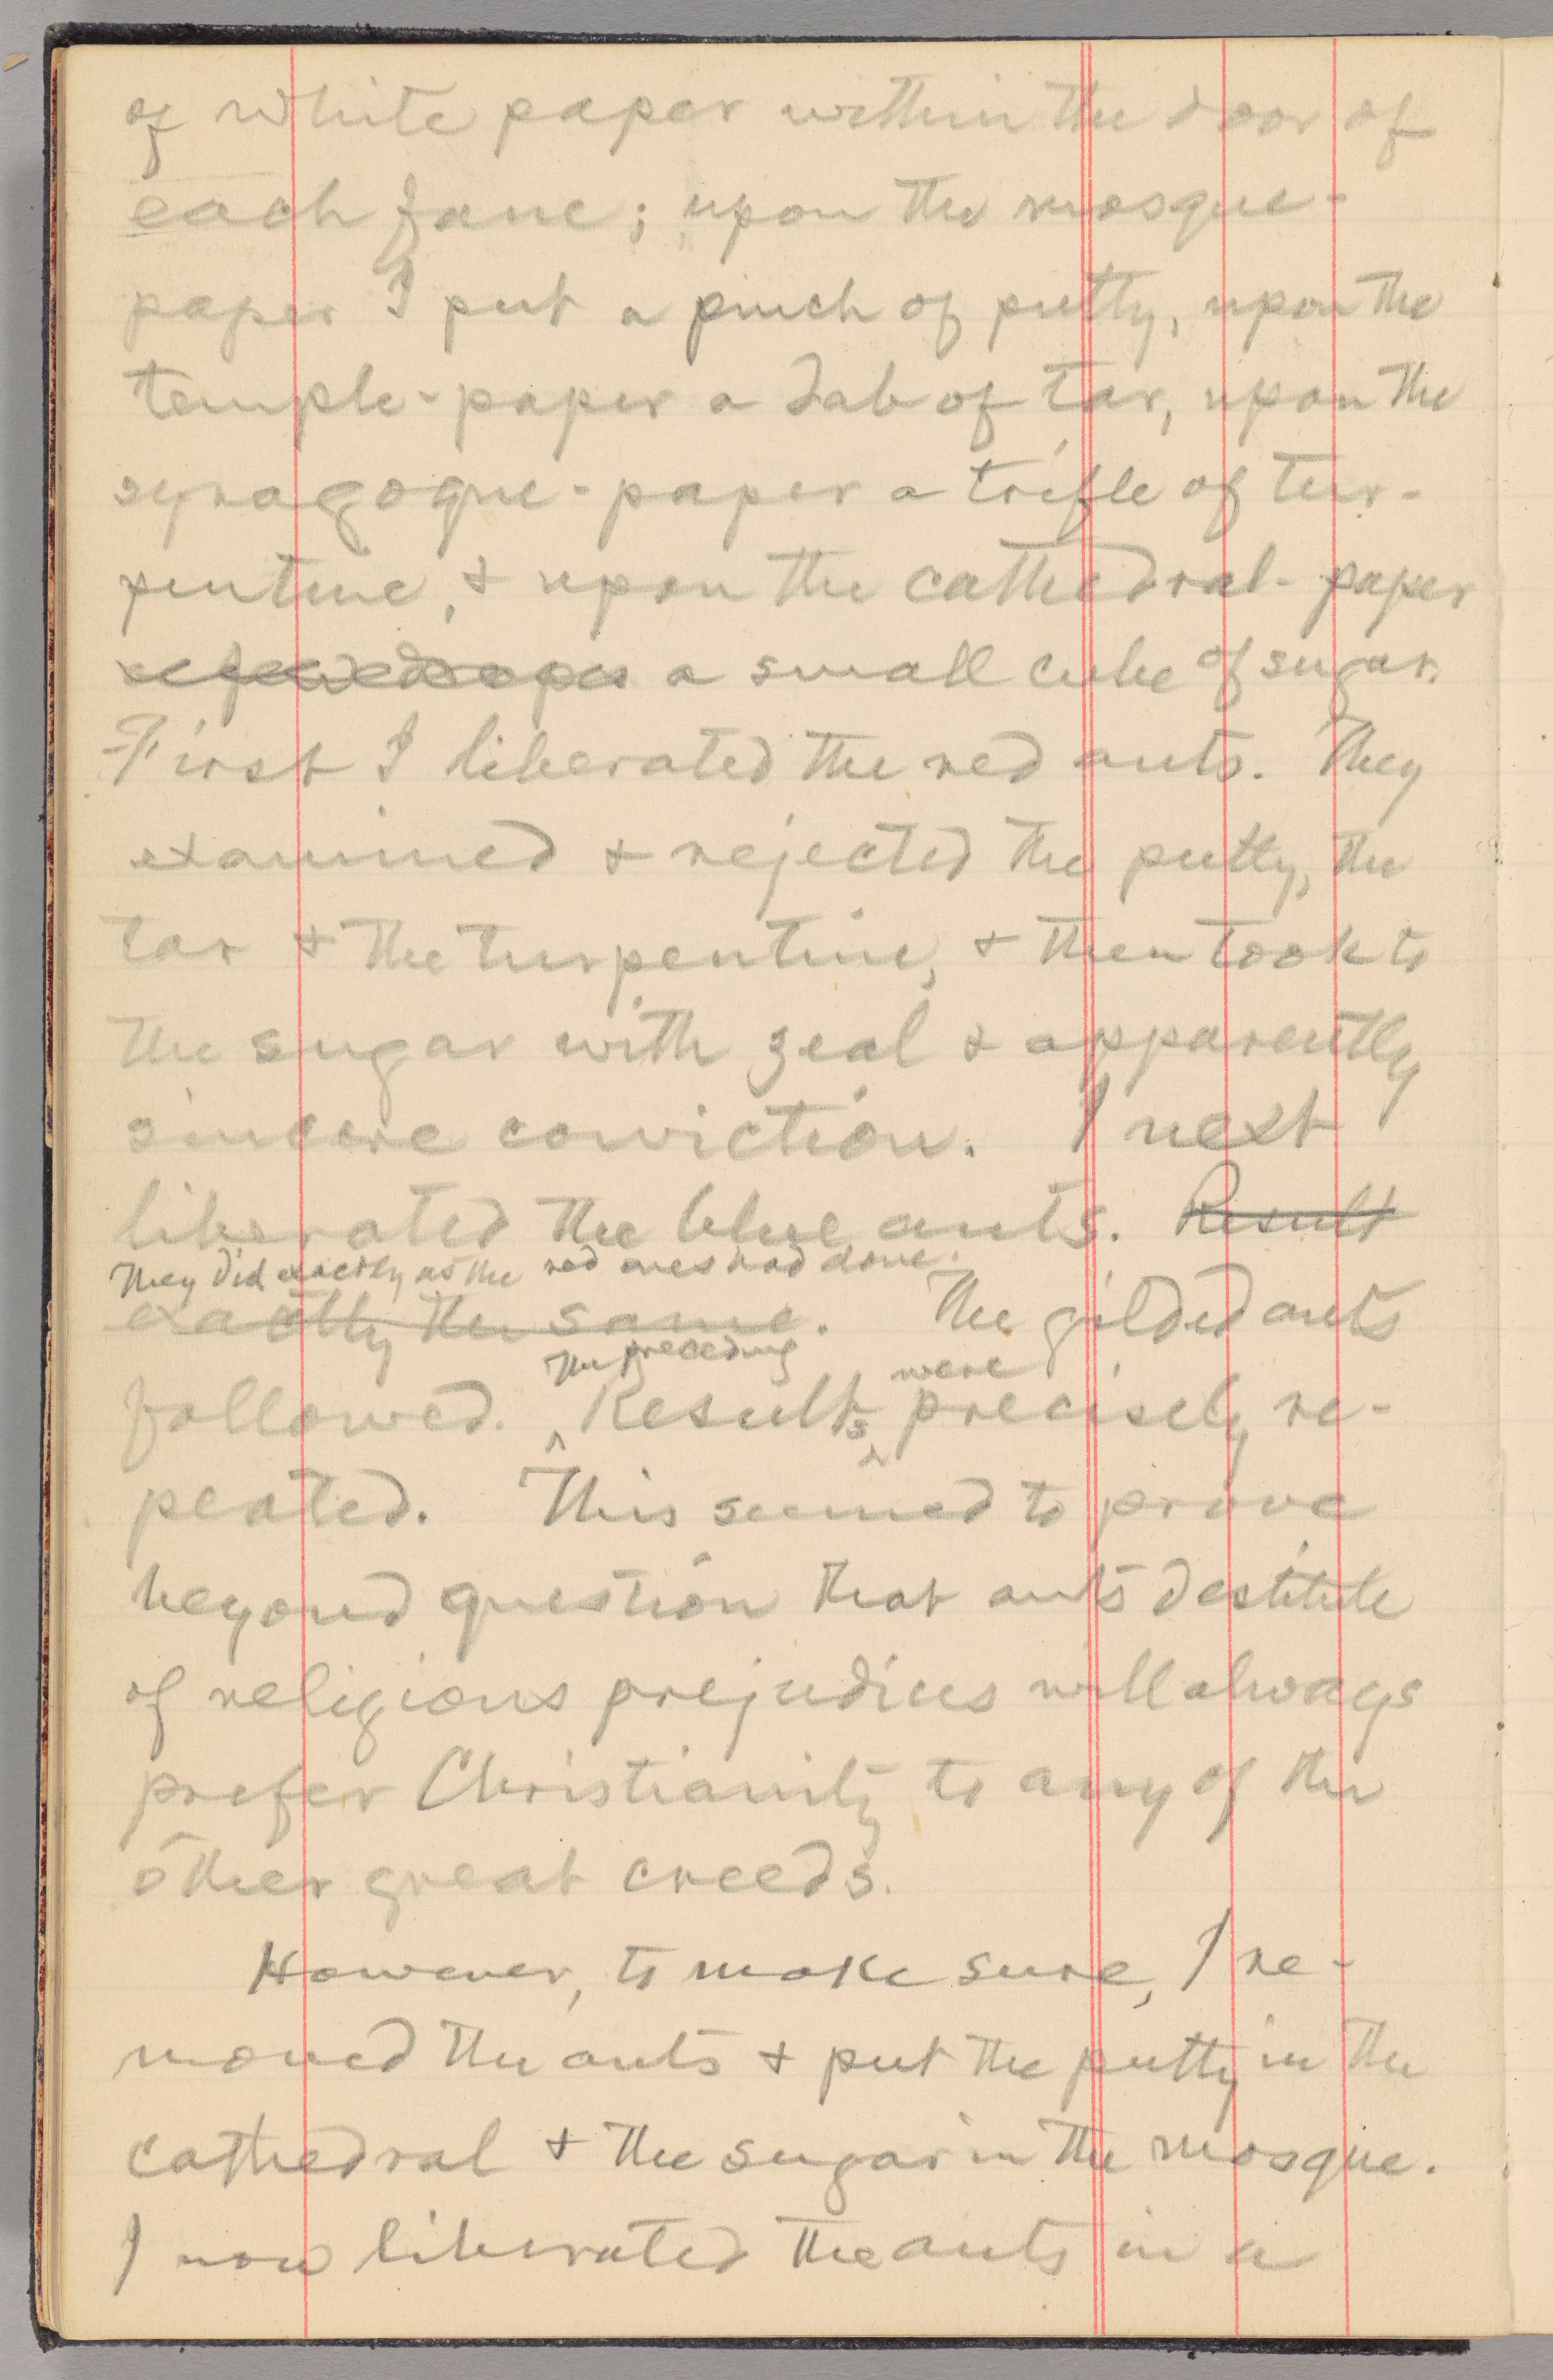 of white paper within the door of
each fane; upon the mosque-
paper I put a pinch of putty, upon the
temple-paper a dab of tar, upon the
synagogue-paper a trifle of tur-
pentine, & upon the cathedral-paper
a small cube of sugar.
First I liberated the red ants. They
examined & rejected the putty, the
tar & the turpentine, & then took to
the sugar with zeal & apparently
sincere conviction. I next
liberated the blue ants. Result
They did exactly as the red ones had done.
exactly the same. The gilded ants
The preceding were
followed. ^ Results ^ precisely re-
peated. This seemed to prove
beyond question that ants destitute
of religious prejudices will always
prefer Christianity to any of the
other great creeds.
However, to make sure, I re-
moved the ants & put the putty in the
cathedral & the sugar in the mosque.
I now liberated the ants in a